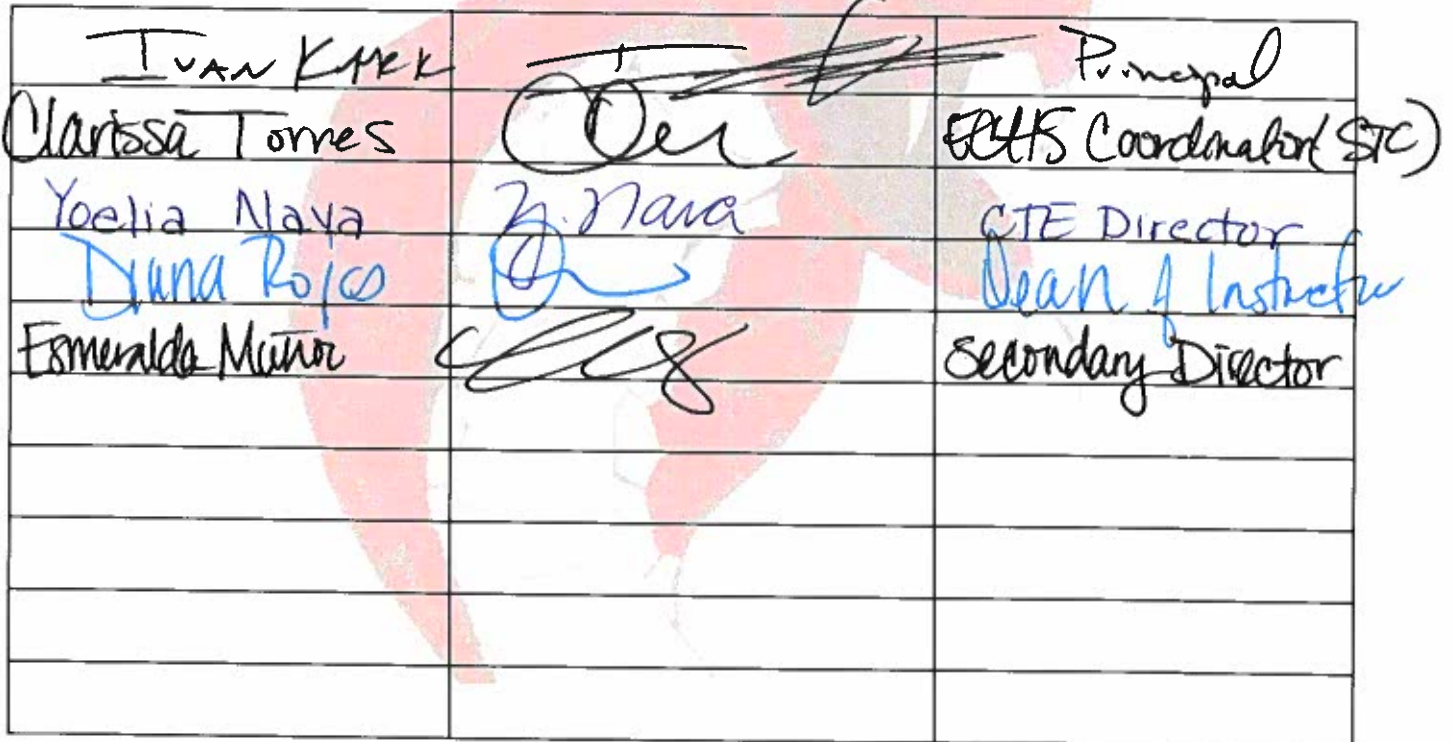 IVAN KARR Principal
Clarissa Torres ECHS Coordinator (STC)
Yoelia Nava Y. Nava CTE Director
Diana Rojas Dean of Instruction
Esmeralda Muñoz Secondary Director